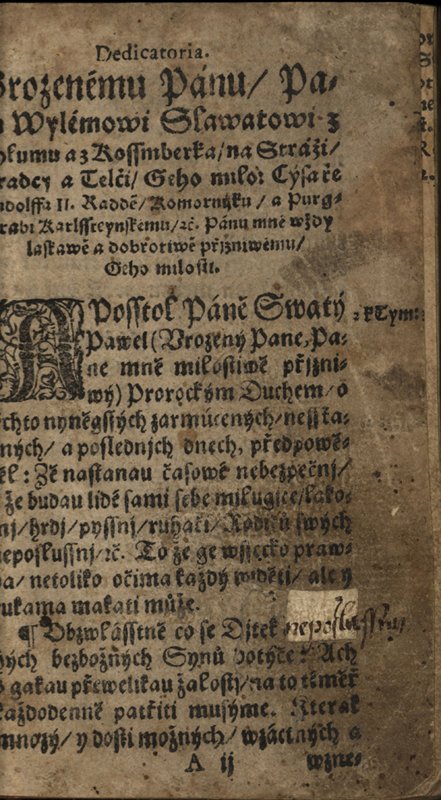 Dedicatoria.
Vrozenému Pánu/ Pa-
Wylémowi Slawatowi z
Chlumu a z Kossmberka/ na Stráži/
Hradcy a Telči/ Geho milo: Cýsaře
Rudolffa II. Raddě/ Komornjku/ a Purg-
krabi Karlssteynskému/ ꝛč. Pánu mně wždy
laskawě a dobrotiwě přjzniwému/
Geho milosti.
APosstol Páně Swatý
Pawel (Vrozený Pane, Pa-
ne mně milostiwě přjzni-
wý) Prorockým Duchem/ o
těchto nyněgssých zarmúcených/ nesska-
ných/ a poslednjch dnech, předpowě-
děl: Žě nastanau časowé nebezpečnj/
že budau lidé sami sebe milugjce/ lako-
mj/ hrdj/ pyssnj/ ruhači/ Rodičů swých
neposlussnj/ ꝛč. To že ge wssecko praw-
da/ netoliko očima každý widěti/ ale y
rukama makati může.
¶ Obzwlásstně co se Djtek neposlussn/
ných bezbožných Synů dotýče: Ach
s gakau přewelikau žalostj/ na to téměř
každodenně patřiti musýme. Kterak
mnozý/ y dosti možných/ wzáctných a
A ij wzne-
2 k Tym: